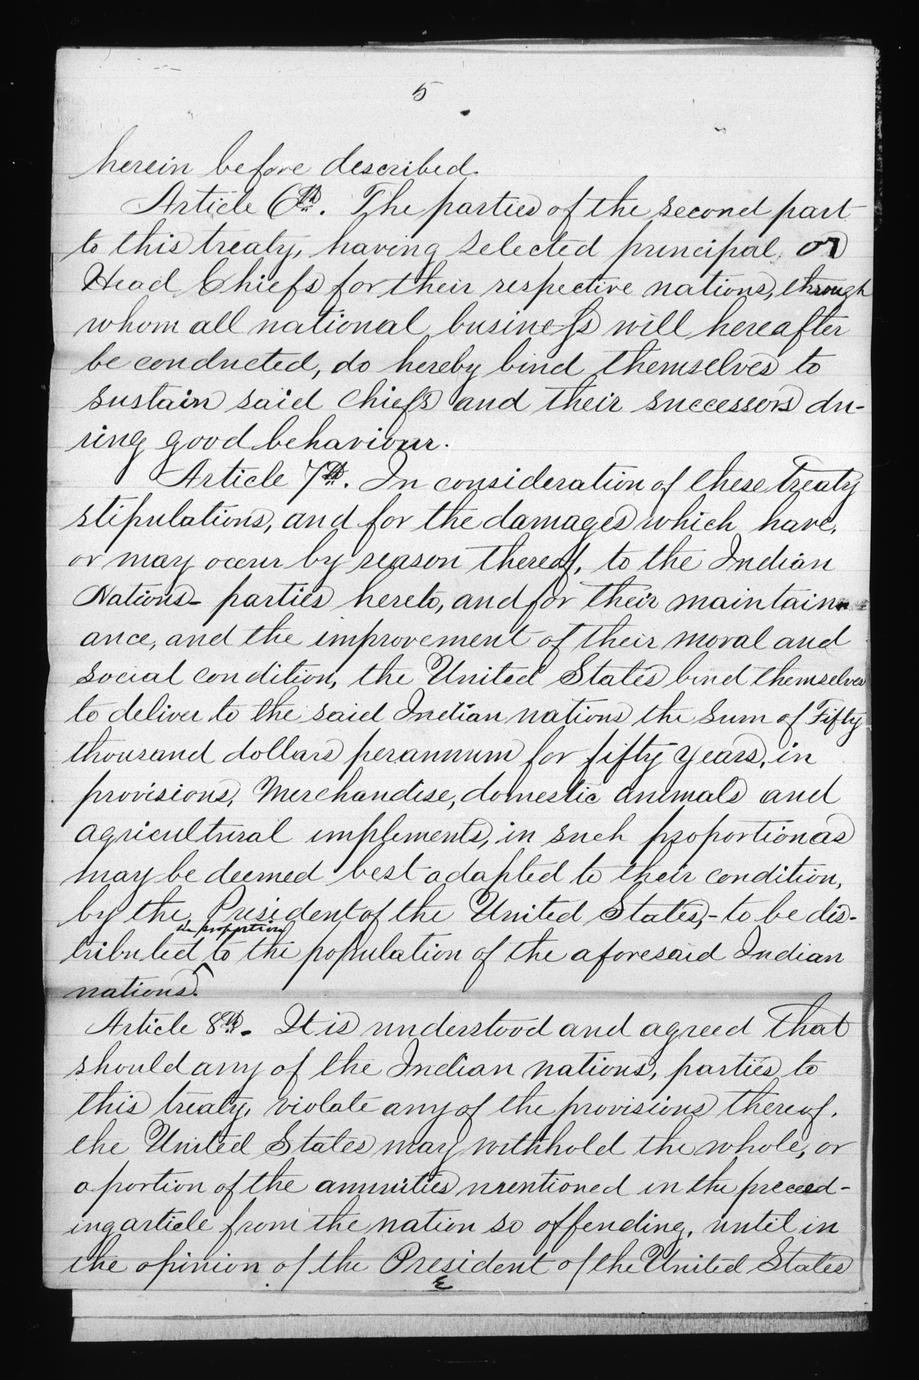 5
herein before described.
Article 6th. The parties of the second part
to this treaty, having selected principal, or
Head Chiefs for their respective nations, through
whom all national business will hereafter
be conducted, do hereby bind themselves to
sustain said chiefs and their successors du-
ring good behaviour.
Article 7th. In consideration of these treaty
stipulations, and for the damages which have,
or may occur by reason thereof, to the Indian
Nations- parties hereto, and for their maintain-
ance, and the improvement of their moral and
social condition, the United States bind themselves
to deliver to the said Indian nations the sum of Fifty
thousand dollars per annum for fifty years, in
provisions, Merchandise, domestic animals and
agricultural implements, in such proportion as
may be deemed best adapted to their condition,
by the President of the United States,- to be dis-
in proportion
tributed to the population of the aforesaid Indian
nations.
Article 8th. It is understood and agreed that
should any of the Indian nations, parties to
this treaty, violate any of the provisions thereof,
the United States may withhold the whole, or
a portion of the annuities mentioned in the preceed-
ing article from the nation so offending, until in
the opinion of the President of the United States